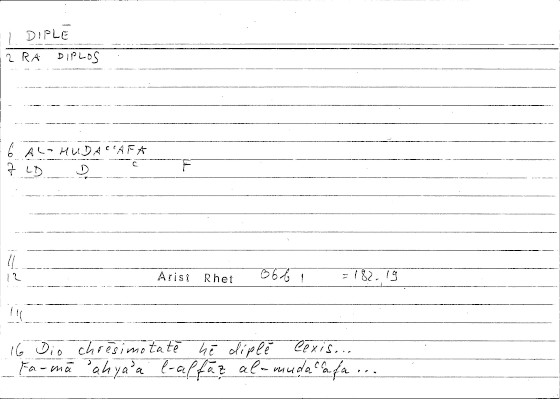 1 DIPLĒ
2 RA DIPLOS
6 AL-MUDAʿʿAFA
7 LD Ḍ ʿ F
11
12 Arist Rhet 06b 1 =182.19
14
16 Dio chrēsimōtatē hē diplē lexis...
Fa-mā ʾahyaʾa l-alfāẓ al-muḍaʿʿafa ...